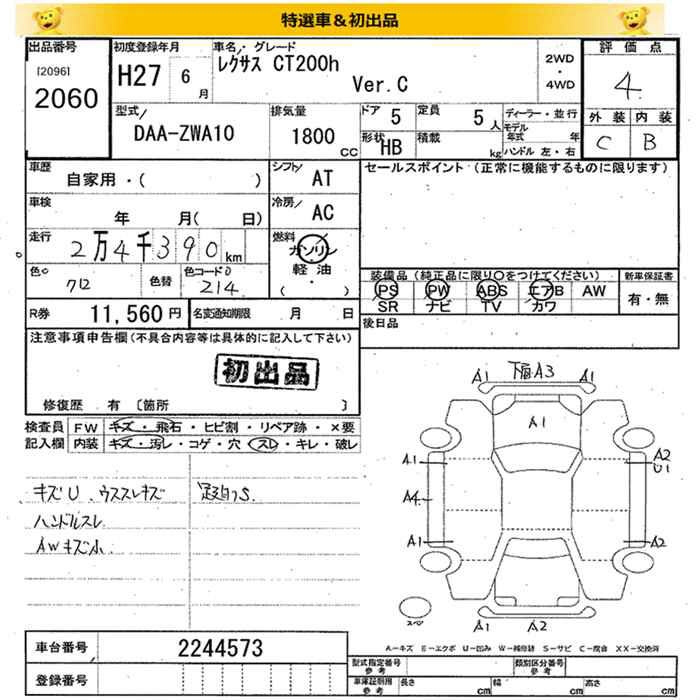 特選車＆初出品
出品番号
[2096]
2060
初度登録年月
H27 6月
車名・グレード
レクサス CT200h
Ver.C
2WD
・
4WD
評価点
4
外装 内装
C B
型式
DAA-ZWA10
排気量
1800 CC
ドア 5
定員 5人
形状 HB
積載 kg
ディーラー・並行
モデル年式 年
ハンドル 左・右
車歴
自家用・( )
シフト AT
セールスポイント (正常に機能するものに限ります)
車検
年 月( 日)
冷房 AC
走行
2万4千390km
燃料
ガソリン
軽油
( ・ )
色
クロ
色替
色コード
214
装備品 (純正品に限り○をつけてください)
PS PW ABS エアB AW
SR ナビ TV カワ
新車保証書
有・無
R券 11,560円
名変通知期限 月 日
後日品
注意事項申告欄 (不具合内容等は具体的に記入して下さい)
初出品
修復歴 有 〔箇所 〕
検査員記入欄
FW キズ・飛石・ヒビ割・リペア跡・×要
内装 キズ・汚レ・コゲ・穴・スレ・キレ・破レ
キズU.ウススレキズ
ハンドルスレ
AWキズ小
A1 下廻A3 A1
A1
A1 A2
U1
A4
A1 A2
スペ
A1 A2
A－キズ E－エクボ U－凹み W－補修跡 S－サビ C－腐食 XX－交換済
車台番号 2244573
登録番号
型式指定番号 参考
類別区分番号 参考
車庫証明用 参考 長さ cm 幅 cm 高さ cm